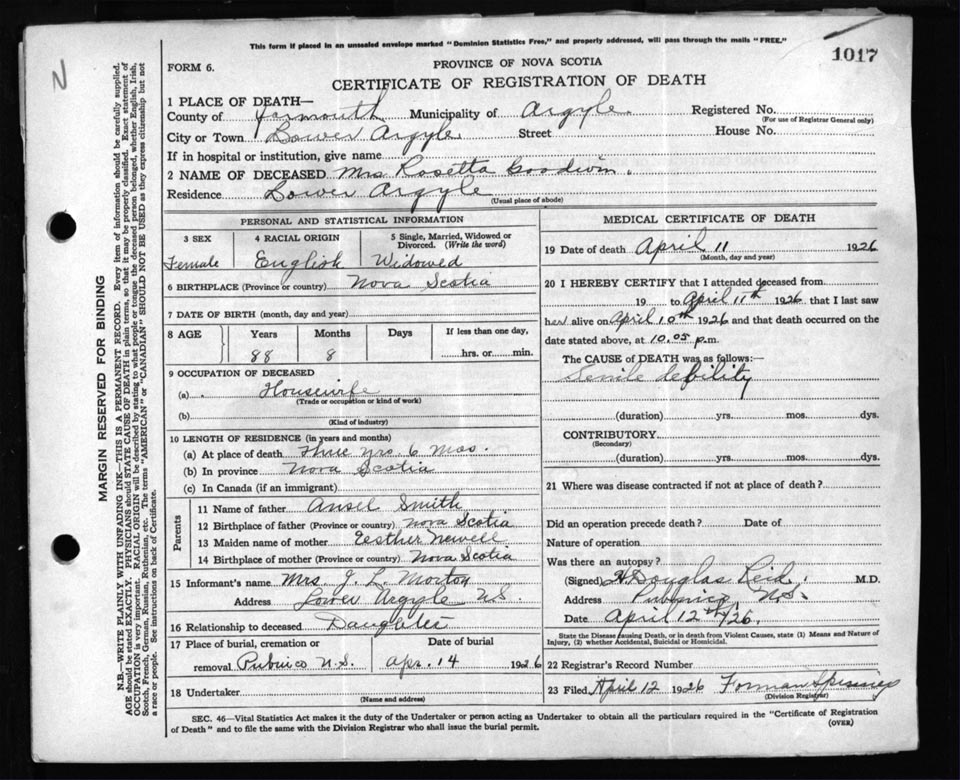 This form if placed in an unsealed envelope marked "Dominion Statistics Free," and properly addressed, will pass through the mails "FREE."
1017
N
FORM 6.
PROVINCE OF NOVA SCOTIA
CERTIFICATE OF REGISTRATION OF DEATH
MARGIN RESERVED FOR BINDING
N.B.—WRITE PLAINLY WITH UNFADING INK—THIS IS A PERMANENT RECORD. Every item of information should be carefully supplied.
AGE should be stated EXACTLY. PHYSICIANS should STATE CAUSE OF DEATH in plain terms, so that it may be properly classified. Exact statement of
OCCUPATION is very important. RACIAL ORIGIN will be described by stating to what people or tongue the deceased person belonged, whether English, Irish,
Scotch, French, German, Russian, Ruthenian, etc. The terms "AMERICAN" or "CANADIAN" SHOULD NOT BE USED as they express citizenship but not
a race or people. See instructions on back of Certificate.
1 PLACE OF DEATH—
County of Yarmouth Municipality of Argyle Registered No.
(For use of Registrar General only)
City or Town Lower Argyle Street House No.
If in hospital or institution, give name
2 NAME OF DECEASED Mrs Rosetta Goodwin.
Residence Lower Argyle
(Usual place of abode)
PERSONAL AND STATISTICAL INFORMATION
3 SEX 4 RACIAL ORIGIN 5 Single, Married, Widowed or Divorced. (Write the word)
Female English Widowed
6 BIRTHPLACE (Province or country) Nova Scotia
7 DATE OF BIRTH (month, day and year)
8 AGE Years Months Days If less than one day,
88 8 hrs. or min.
9 OCCUPATION OF DECEASED
(a) Housewife
(Trade or occupation or kind of work)
(b)
(Kind of industry)
10 LENGTH OF RESIDENCE (in years and months)
(a) At place of death Three yrs 6 mos.
(b) In province Nova Scotia
(c) In Canada (if an immigrant)
Parents
11 Name of father Ansel Smith
12 Birthplace of father (Province or country) Nova Scotia
13 Maiden name of mother Eesther Newell
14 Birthplace of mother (Province or country) Nova Scotia
15 Informant's name Mrs. J. L. Morton
Address Lower Argyle N.S.
16 Relationship to deceased Daughter
17 Place of burial, cremation or Date of burial
removal Pubnico N.S. Apr. 14 1926
18 Undertaker
(Name and address)
MEDICAL CERTIFICATE OF DEATH
19 Date of death April 11 1926
(Month, day and year)
20 I HEREBY CERTIFY that I attended deceased from
19 to April 11th 1926 that I last saw
her alive on April 10th 1926 and that death occurred on
date stated above, at 10.05 p.m.
The CAUSE OF DEATH was as follows:—
Senile debility
(duration) yrs. mos. dys.
CONTRIBUTORY
(Secondary)
(duration) yrs. mos. dys.
21 Where was disease contracted if not at place of death?
Did an operation precede death? Date of
Nature of operation
Was there an autopsy?
(Signed) H Douglas Reid. M.D.
Address Pubnico N.S.
Date April 12th/26.
State the Disease causing Death, or in death from Violent Causes, state (1) Means and Nature of
Injury, (2) whether Accidental, Suicidal or Homicidal.
22 Registrar's Record Number
23 Filed April 12 1926 Forman Spinney
(Division Registrar)
SEC. 46—Vital Statistics Act makes it the duty of the Undertaker or person acting as Undertaker to obtain all the particulars required in the "Certificate of Registration
of Death" and to file the same with the Division Registrar who shall issue the burial permit. (OVER)